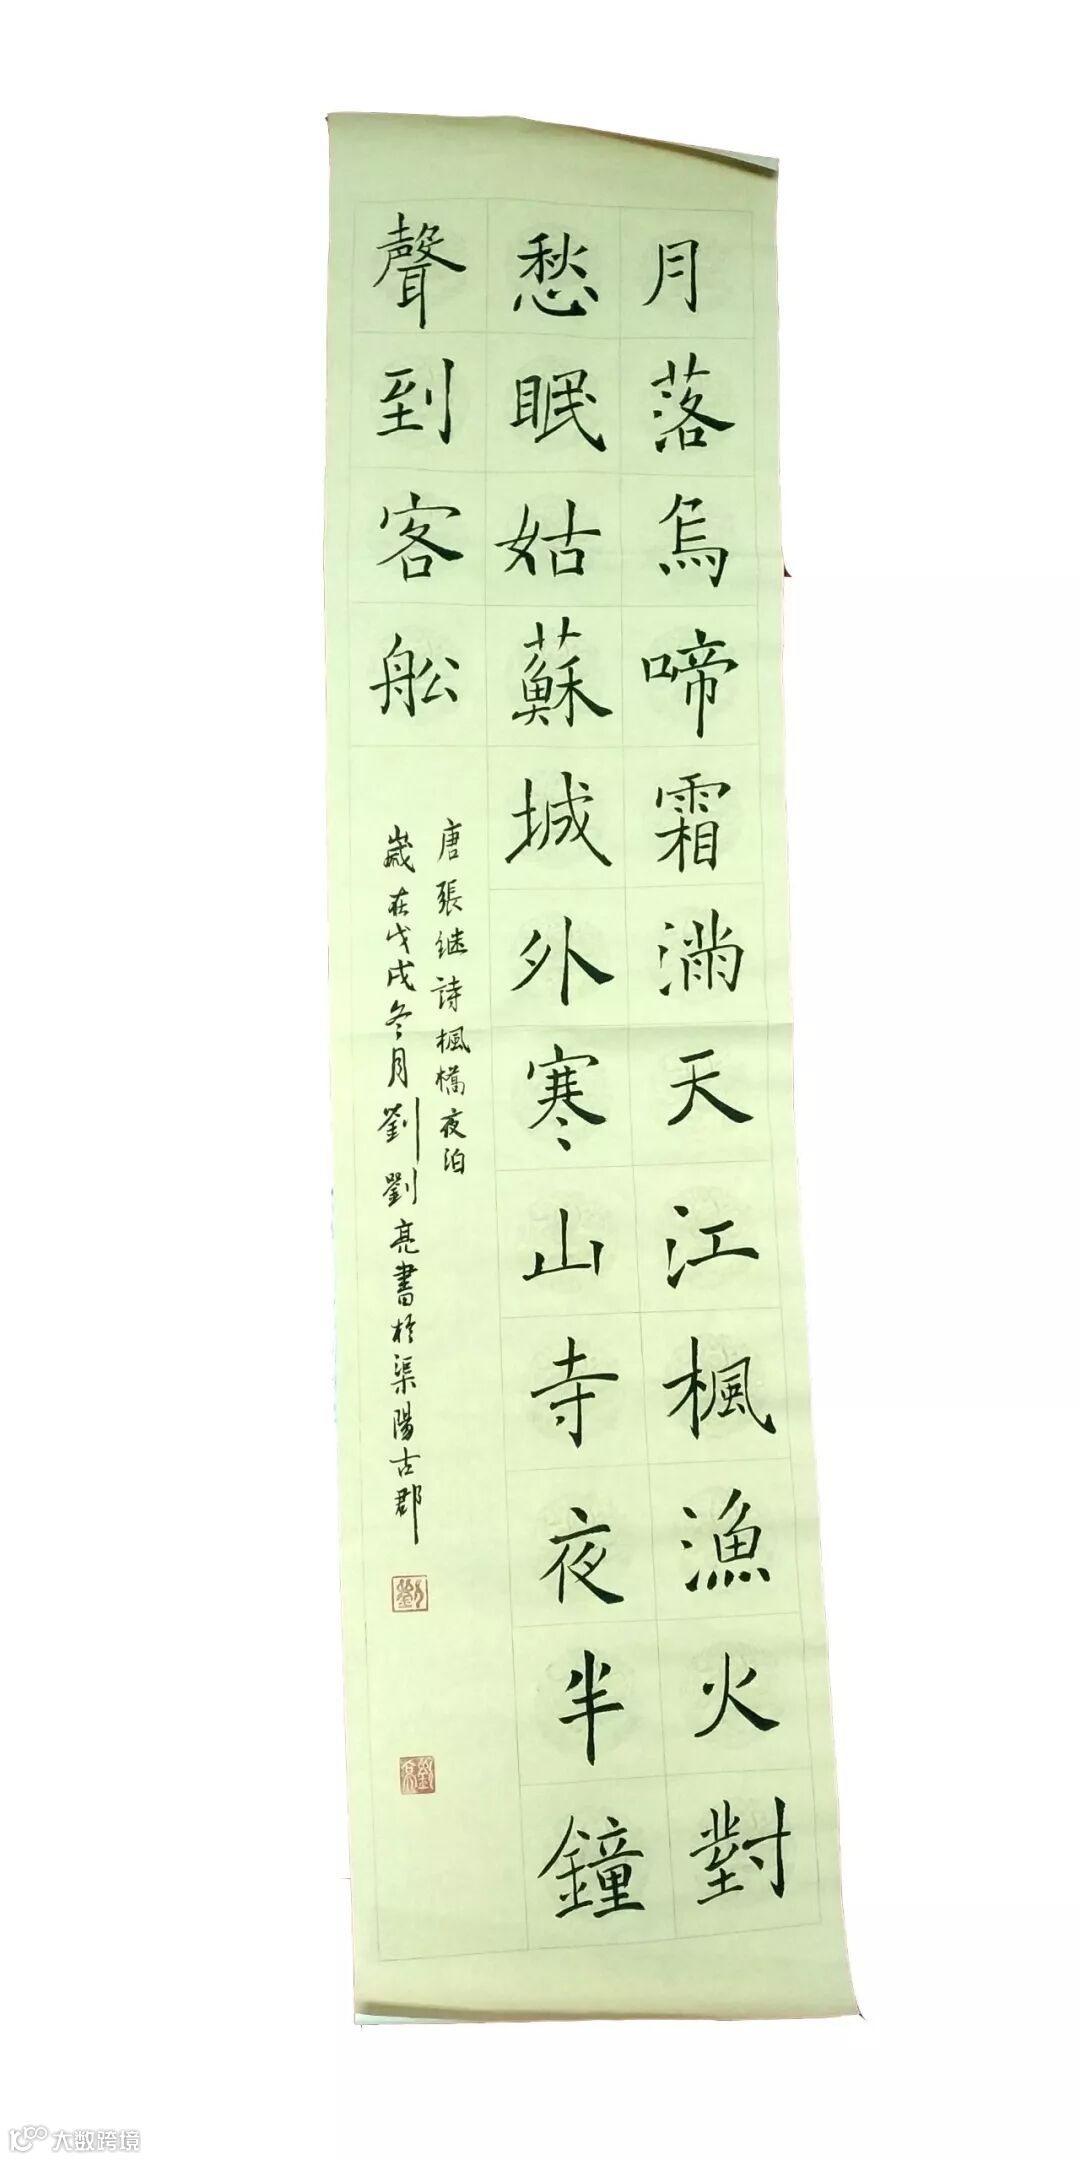 月落烏啼霜滿天江楓漁火對
愁眠姑蘇城外寒山寺夜半鐘
聲到客舩
唐張继詩楓橋夜泊
歲在戊戌冬月劉劉亮書於渠陽古郡
劉
劉亮
大数跨境